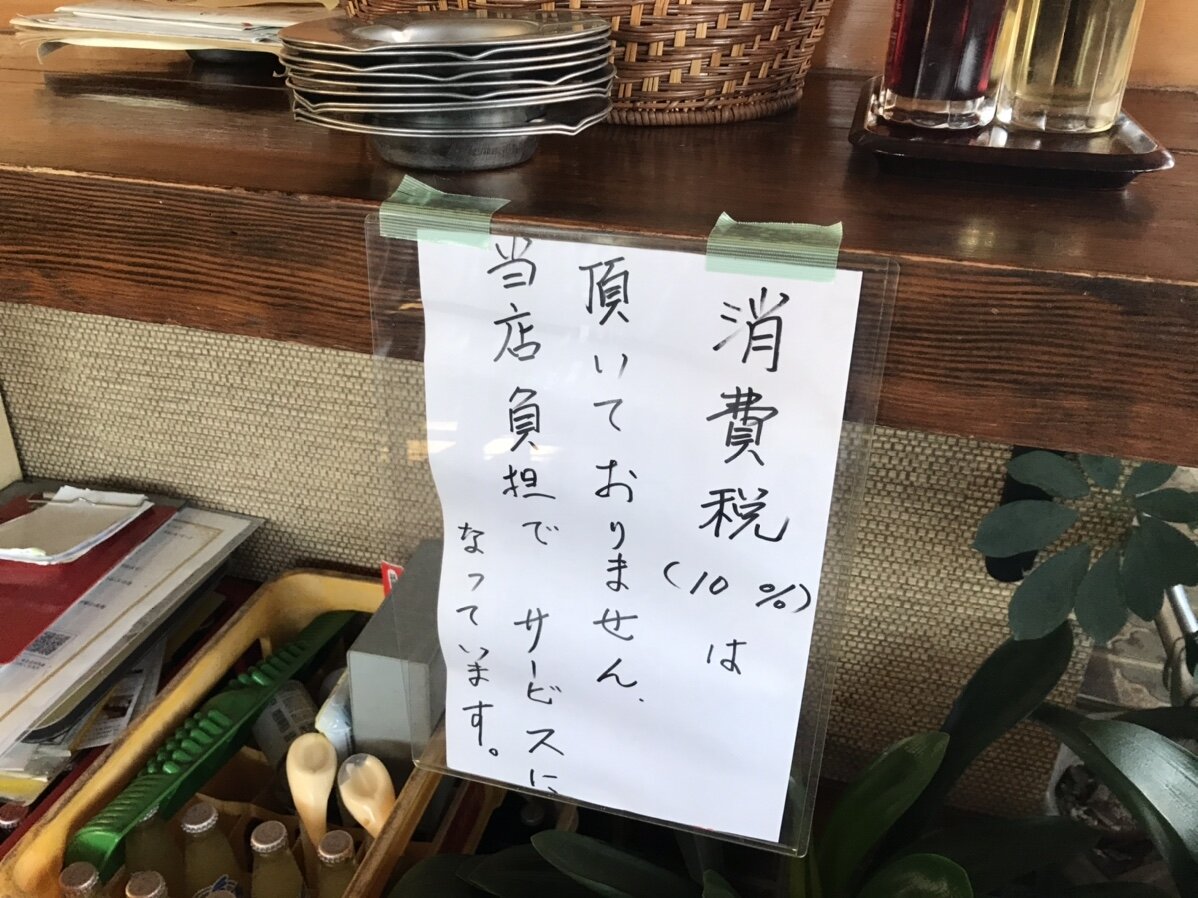 消費税(10%)は
頂いておりません.
当店負担でサービスに
なっています。